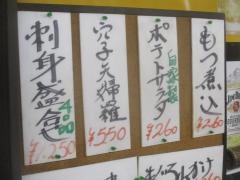 もつ煮込
¥260
自家製
ポテトサラダ
¥260
穴子天婦羅
¥550
刺身盛合せ
¥1,250